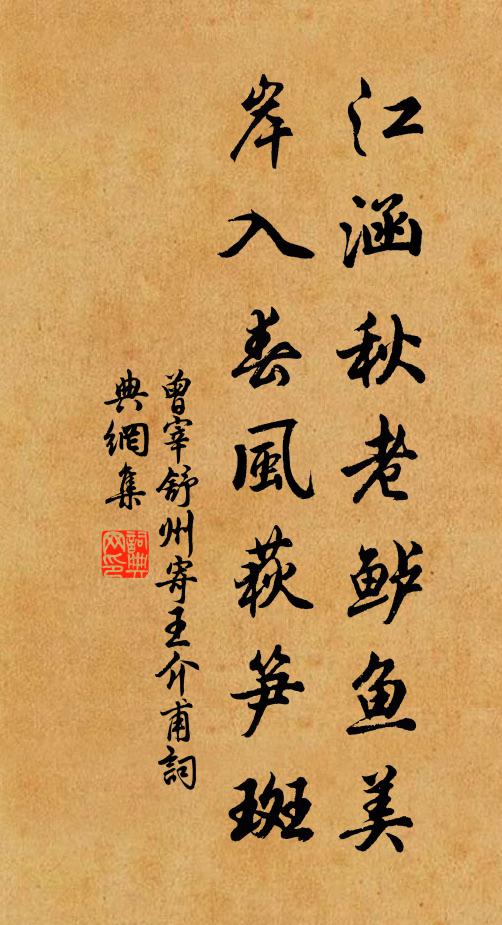 江涵秋老鲈鱼美
岸入春風荻笋斑
曾宰舒州寄王介甫詞
典網集
詞典网印